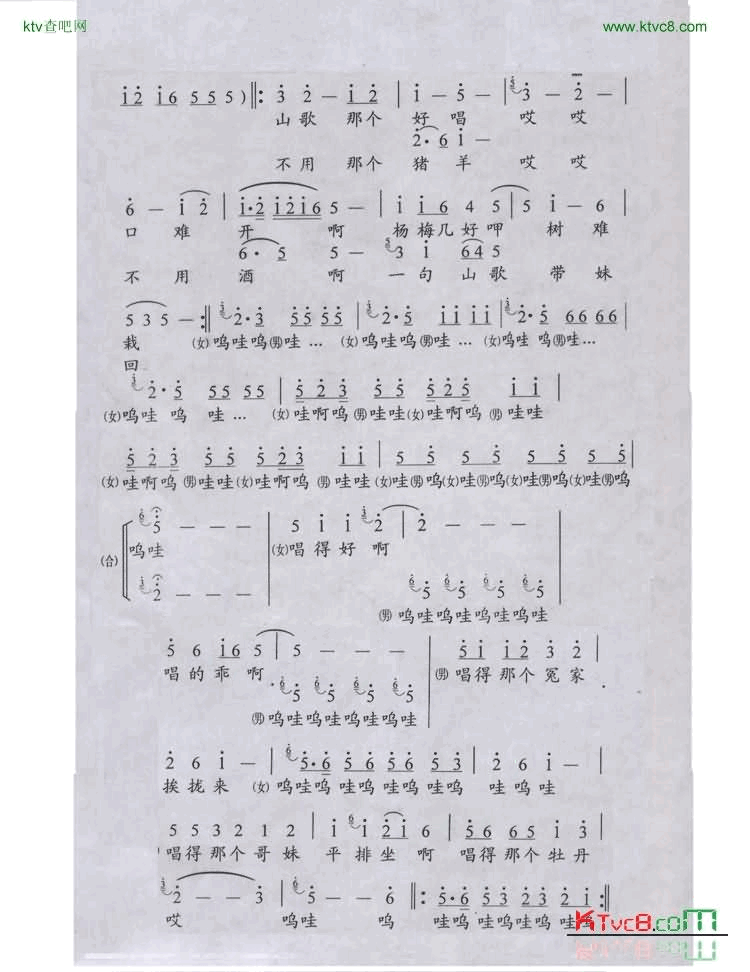 ktv查吧网
www.ktvc8.com
i2 i6 5 5 5) ‖: 3 2 — i 2 | i — 5 — | 3 — 2 — |
山歌 那个 好唱 哎哎
2· 6 i —
不用 那个 猪羊 哎哎
6 — i 2 | i·2 i2i6 5 — | i i6 4 5 | 5 i — 6 |
口难开 啊 杨梅几好呷 树难
6· 5 5 — 3 i 64 5
不用酒 啊 一句山歌 带妹
5 3 5 — :‖ 2·3 55 55 | 2·5 ii ii | 2·5 66 66 |
栽 (女)呜哇呜(男)哇… (女)呜哇呜(男)哇… (女)呜哇 呜(男)哇…
回
2·5 55 55 | 523 55 525 ii |
(女)呜哇 呜 哇… (女)哇啊呜(男)哇哇(女)哇啊呜(男)哇哇
523 55 523 ii | 5 5 5 5 5 5 5 5 |
(女)哇啊呜(男)哇哇(女)哇啊呜(男)哇哇(女)哇(男)呜(女)哇(男)呜(女)哇(男)呜(女)哇(男)呜
5 — — — | 5 i i 2 | 2 — — — |
(合) 呜哇 (女)唱得好啊
2 — — — 5 5 5 5
(男)呜哇呜哇呜哇呜哇
5 6 i6 5 | 5 — — — | 5i i2 3 2 |
唱的乖 啊 (男)唱得那个冤家
5 5 5 5
(男)呜哇呜哇呜哇呜哇
2 6 i — | 5·6 56 56 53 | 2 6 i — |
挨拢来 (女)呜哇呜 哇呜哇呜 哇呜 哇呜哇
5 5 3 2 1 2 | i i 2i 6 | 56 65 i 3 |
唱得那个哥妹 平排坐 啊 唱得那个牡丹
2 — — 3 | 5 — — 6 ‖: 5·6 53 23 2i :‖
哎 呜哇 呜 哇呜 哇呜哇呜 哇呜
KTvc8.com